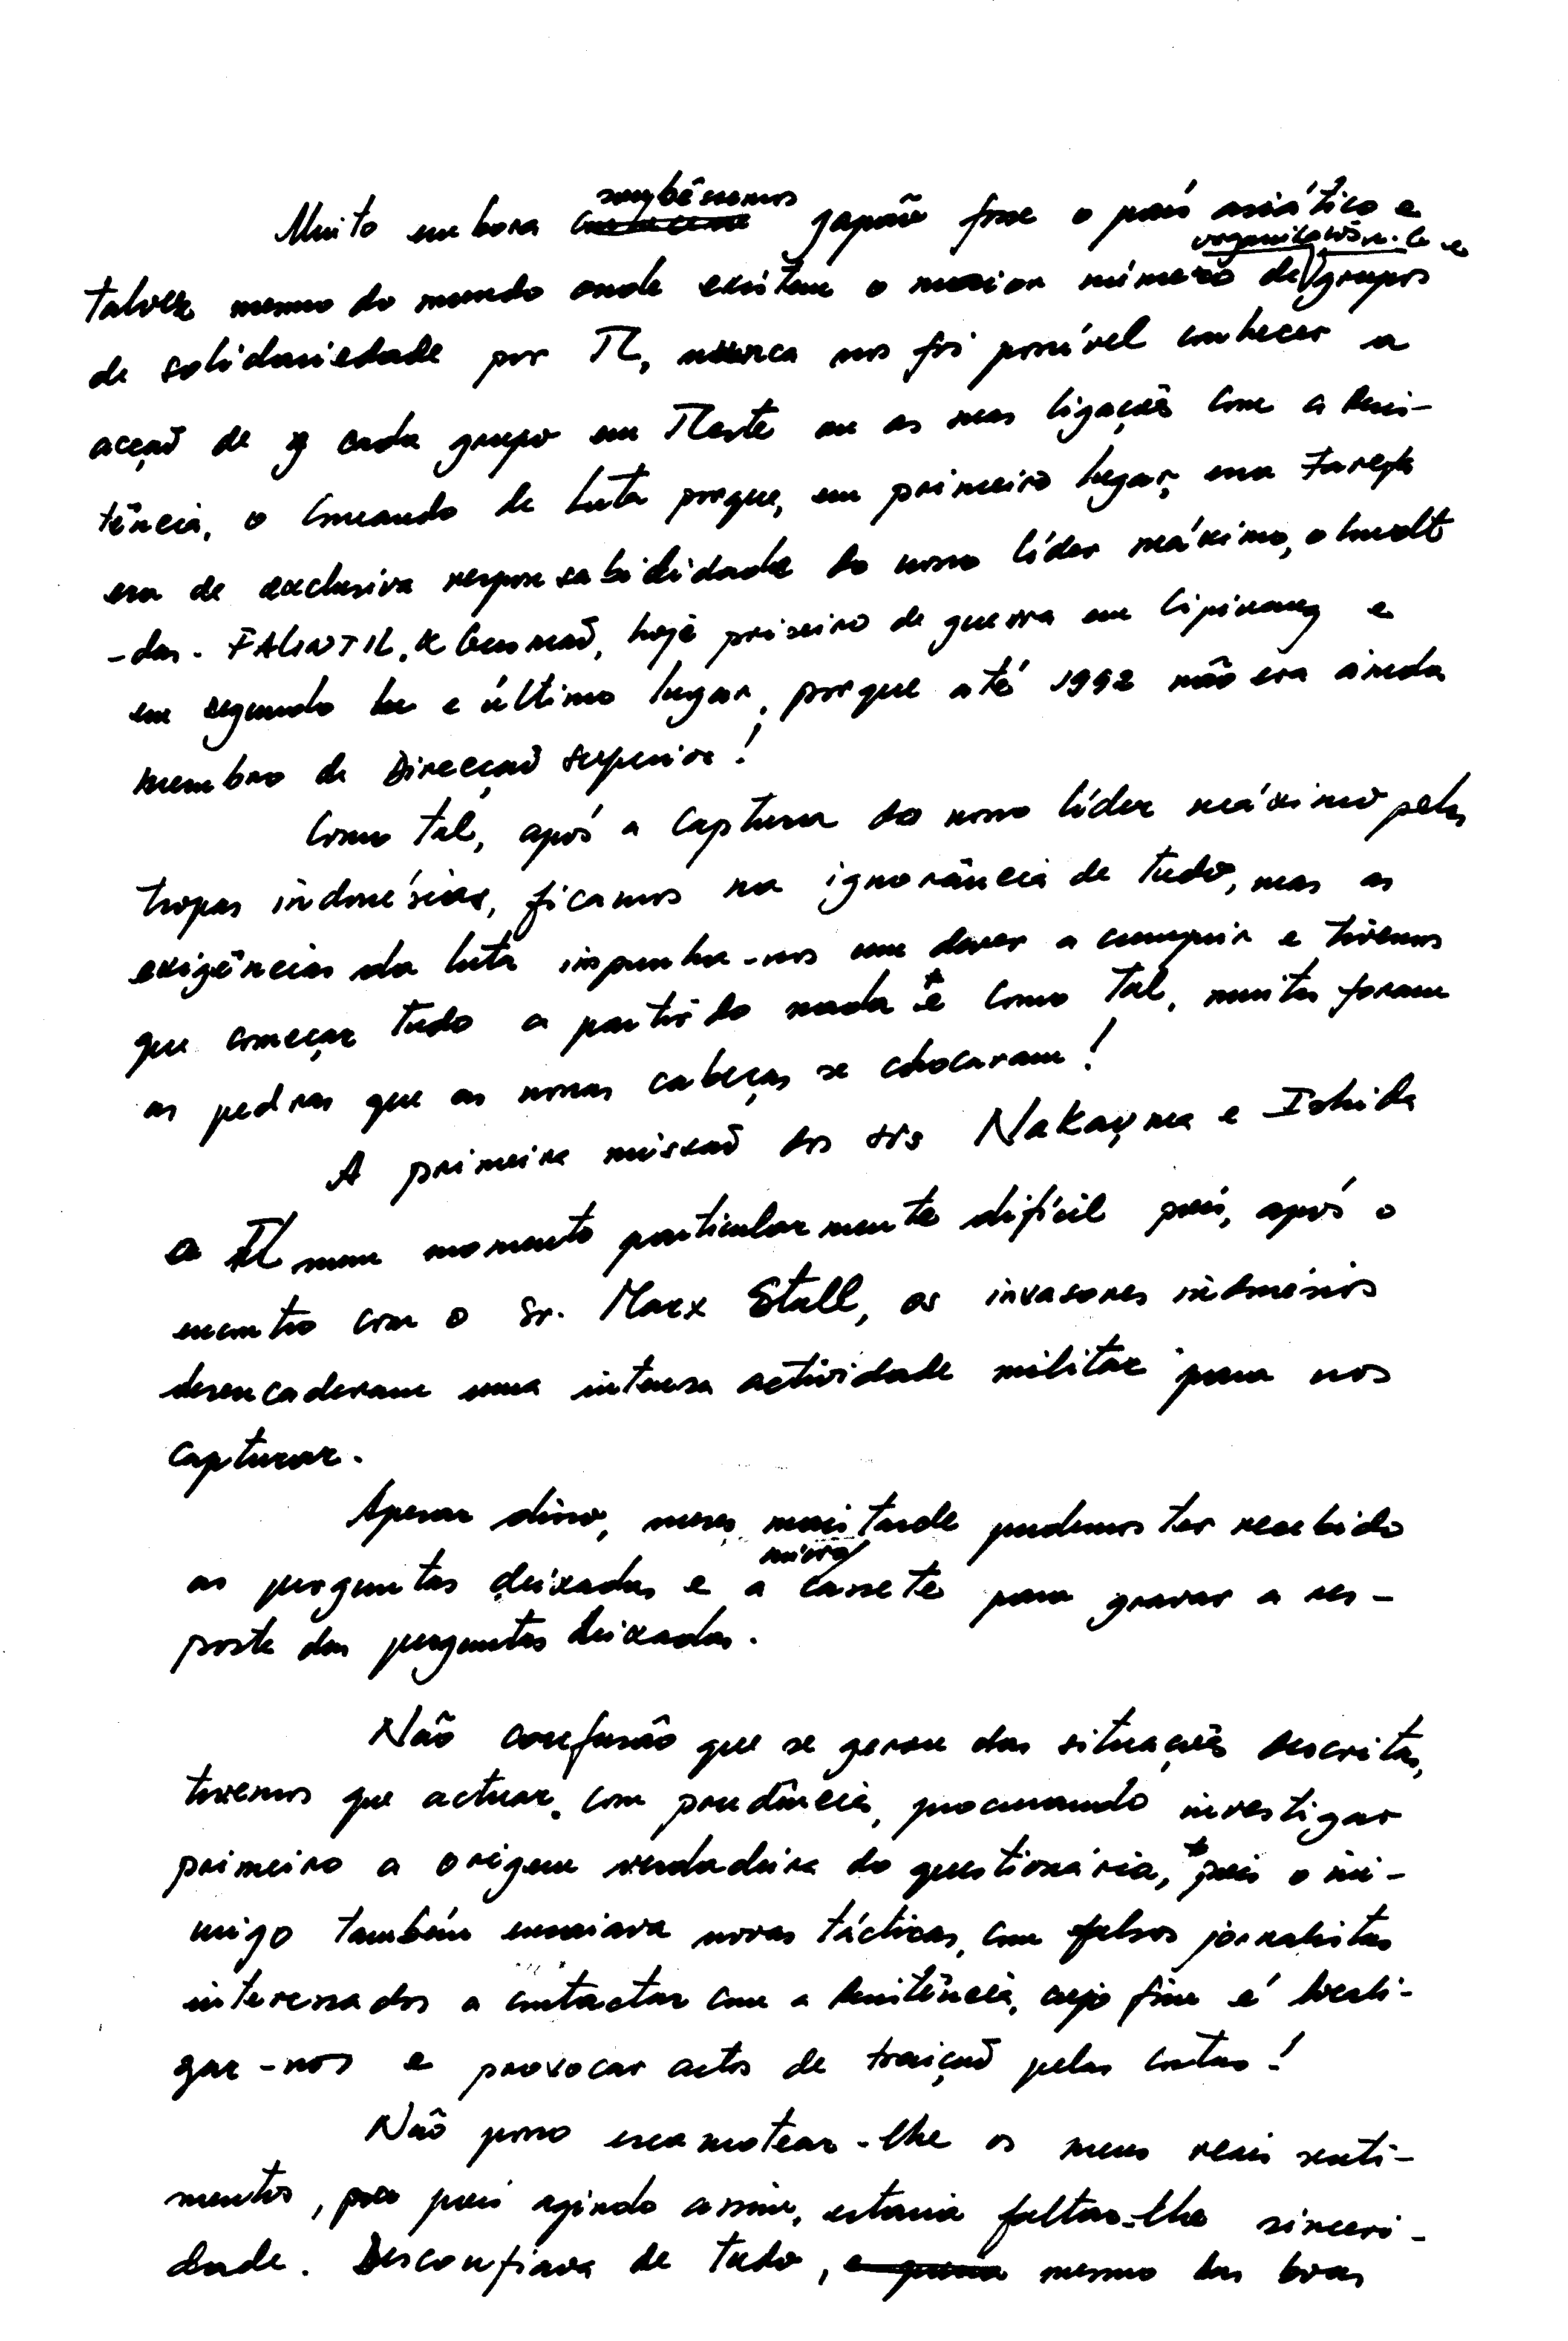 Muito embora soubéssemos Japão fosse o país asiático e
talvez mesmo do mundo onde existem o maior número de organizações e grupos
de solidariedade por TL, nunca nos foi possível conhecer a
acção de cada grupo em TLeste ou as suas ligações com a Resis-
tência, o Comando da Luta porque, em primeiro lugar, essa Tarefa
era de exclusiva responsabilidade do nosso líder máximo, o Cmdt
-das. FALINTIL, K. Gusmão, hoje prisioneiro de guerra em Cipinang e
em segundo e último lugar, porque até 1992 não era ainda
membro da Direcção Superior!
Como tal, após a captura do nosso líder máximo pelas
tropas indonésias, ficamos na ignorância de tudo, mas as
exigências da luta impunha-nos um dever a cumprir e tivemos
que começar tudo a partir do nada e como tal, muitas foram
as pedras que as nossas cabeças se chocaram!
A primeira missão dos srs Nakayma e Ishida
a TL num momento particularmente difícil pois, após o
encontro com o Sr. Marx Stall, os invasores indonésios
desencaderam uma intensa actividade militar para nos
capturar.
Apesar disso, meses mais tarde pudemos ter recebido
as perguntas deixadas e a micro cassete para gravar a res-
posta das perguntas deixadas.
Não confusão que se gerou das situações descritas,
tivemos que actuar, com prudência, procurando investigar
primeiro a origem verdadeira do questionária, pois o ini-
migo também ensaiava novas tácticas, com falsos jornalistas
interessados a contactar com a Resistência, cujo fim é locali-
gar-nos e provocar actos de traição pelos contas!
Não posso escamotear-lhe os meus reais senti-
mentos, pois agindo assim, estaria faltar-lhe sinceri-
dade. Desconfiava de tudo, mesmo das boas